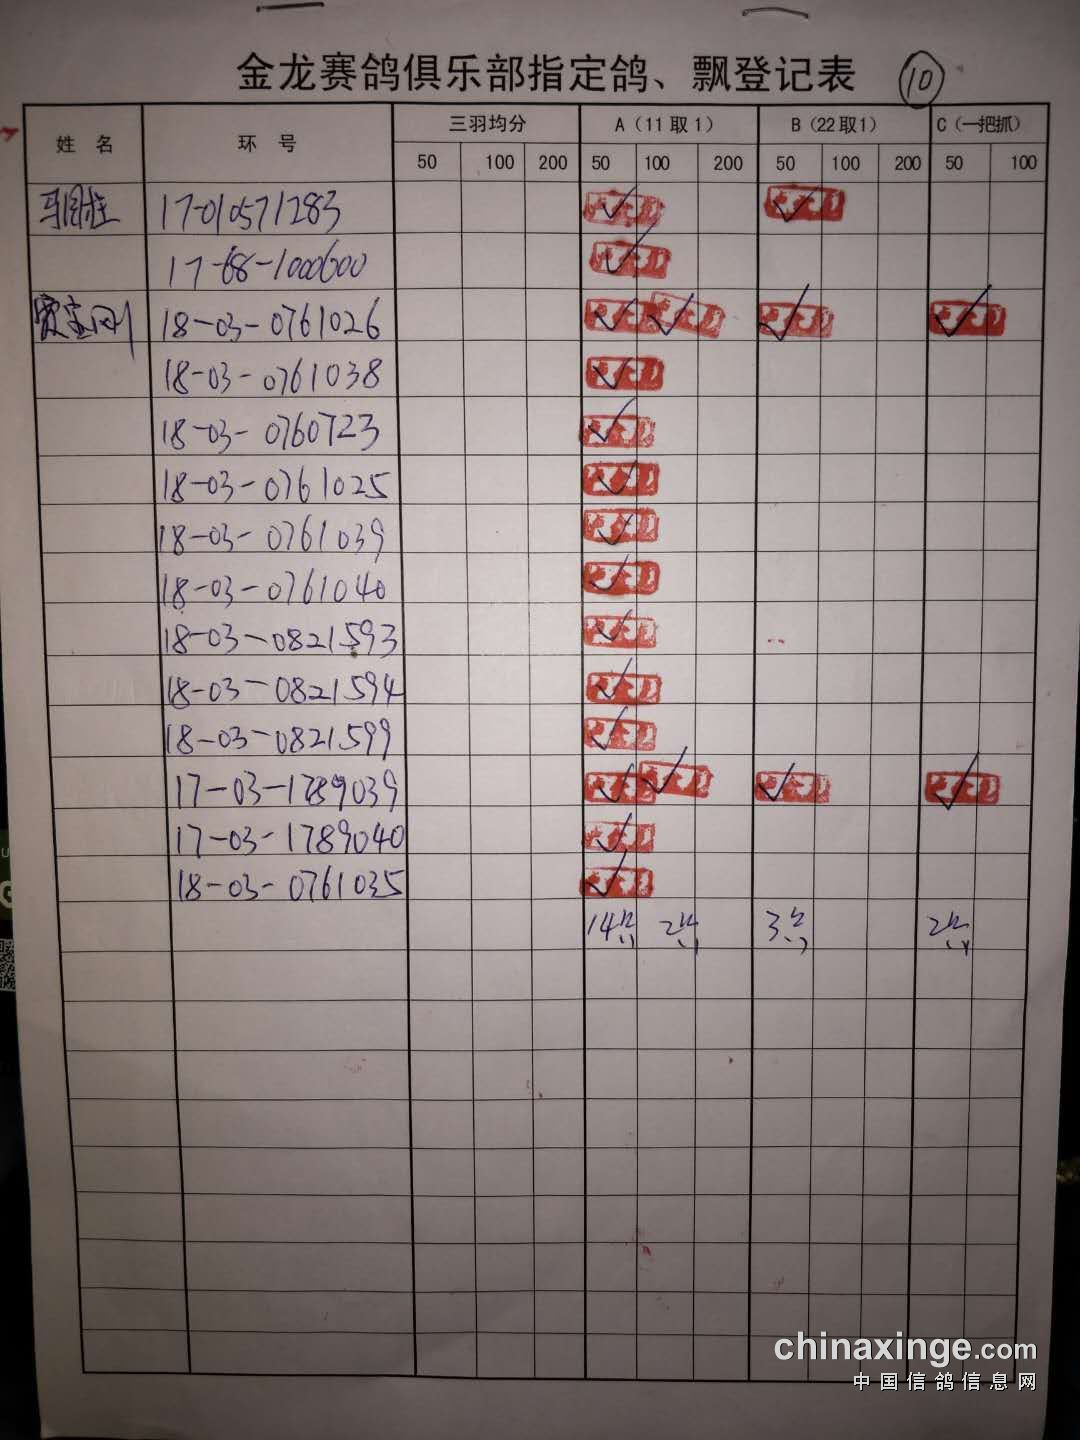 金龙赛鸽俱乐部指定鸽、飘登记表 10
姓 名 环 号 三羽均分 A（11取1） B（22取1） C（一把抓）
50 100 200 50 100 200 50 100 200 50 100
17-010571283 ✓ ✓
17-68-1000600 ✓
贾宝刚 18-03-0761026 ✓ ✓ ✓ ✓
18-03-0761038 ✓
18-03-0760723 ✓
18-03-0761025 ✓
18-03-0761039 ✓
18-03-0761040 ✓
18-03-0821593 ✓
18-03-0821594 ✓
18-03-0821599 ✓
17-03-1789039 ✓ ✓ ✓ ✓
17-03-1789040 ✓
18-03-0761035 ✓
14点 2点 3点 2点
chinaxinge.com
中国信鸽信息网